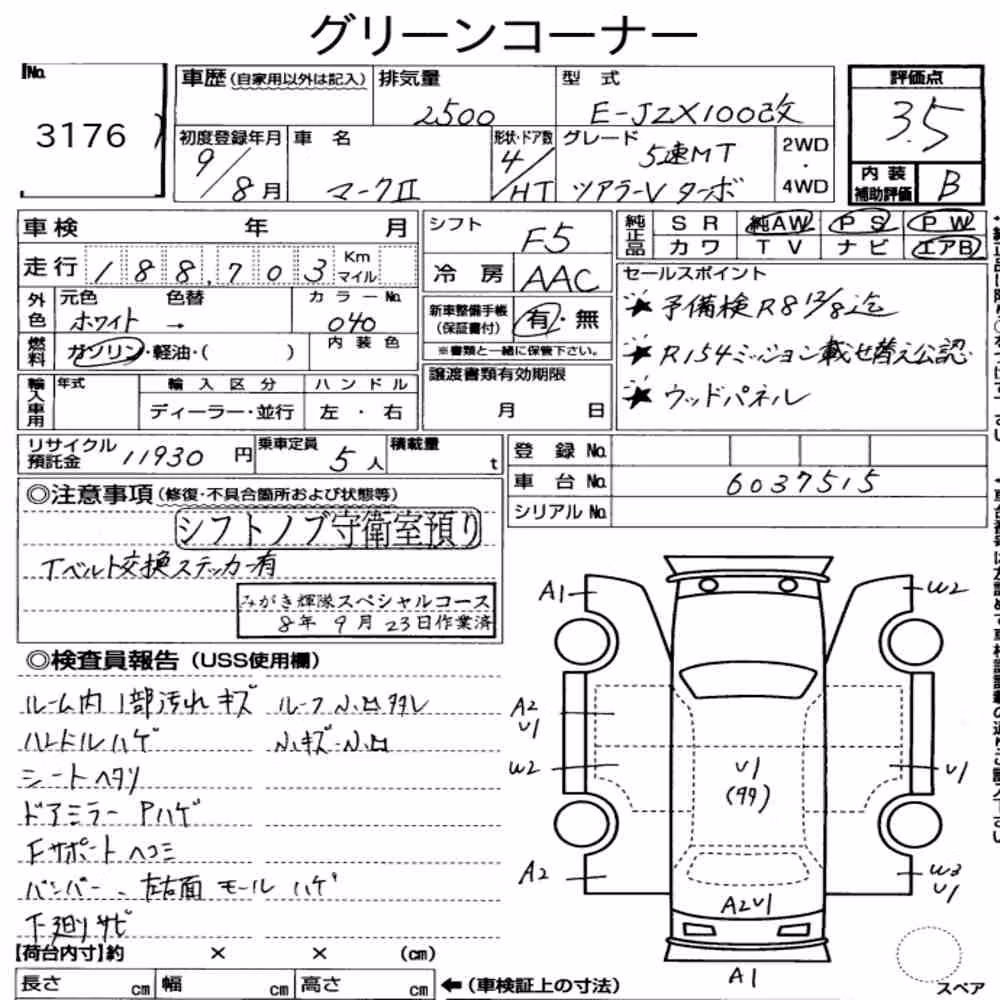 グリーンコーナー
No. 3176
車歴 (自家用以外は記入)
排気量 2500
型式 E-JZX100改
評価点 3.5
初度登録年月 9/8月
車名 マークⅡ
形状・ドア数 4/HT
グレード 5速MT ツアラーV ターボ
2WD・4WD
内装補助評価 B
車検 年 月
シフト F5
純正品 SR 純AW PS PW
カワ TV ナビ エアB
走行 188,703 Km マイル
冷房 AAC
セールスポイント
★予備検R8 12/8迄
★R154ミッション載せ替え公認
★ウッドパネル
外色 元色 ホワイト 色替 → カラーNo. 040
新車整備手帳 (保証書付) 有・無
※書類と一緒に保管下さい。
燃料 ガソリン・軽油・( ) 内装色
譲渡書類有効期限 月 日
輸入車用 年式 輸入区分 ハンドル
ディーラー・並行 左・右
リサイクル預託金 11930円
乗車定員 5人
積載量 t
登録No.
車台No. 6037515
シリアルNo.
◎注意事項 (修復・不具合箇所および状態等)
シフトノブ守衛室預り
Tベルト交換ステッカー有
みがき輝隊スペシャルコース
8年9月23日作業済
◎検査員報告 (USS使用欄)
ルーム内1部汚れ キズ ルーフ小凹タタレ
ハンドルハゲ 小キズ・小凹
シートヘタリ
ドアミラーPハゲ
Fサポートヘコミ
バンパー、左右面モールハゲ
下廻りサビ
A1 W2
A2 U1
W2 U1 (99) U1
A2 W3 U1
A2U1
A1
【荷台内寸】約 × × (cm)
長さ cm 幅 cm 高さ cm ←(車検証上の寸法)
スペア